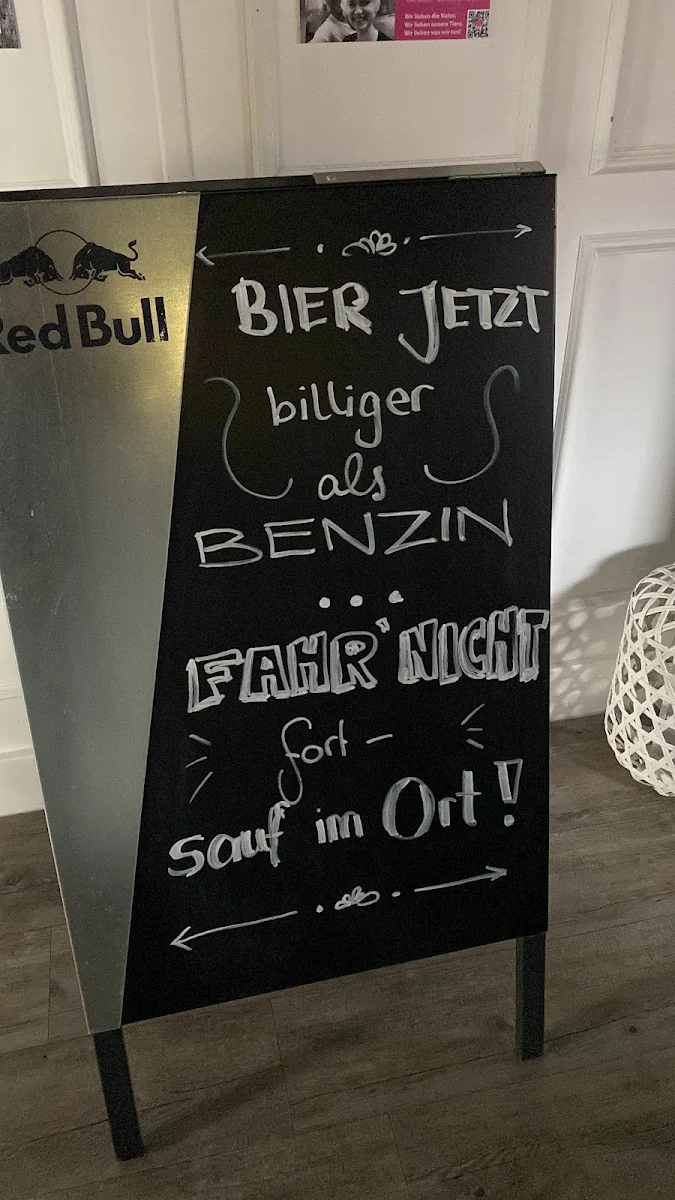 Wir lieben die Natur,
Wir lieben unsere Tiere,
Wir lieben was wir tun!
Red Bull
BIER JETZT
billiger
als
BENZIN
...
FAHR' NICHT
fort -
sauf im Ort!